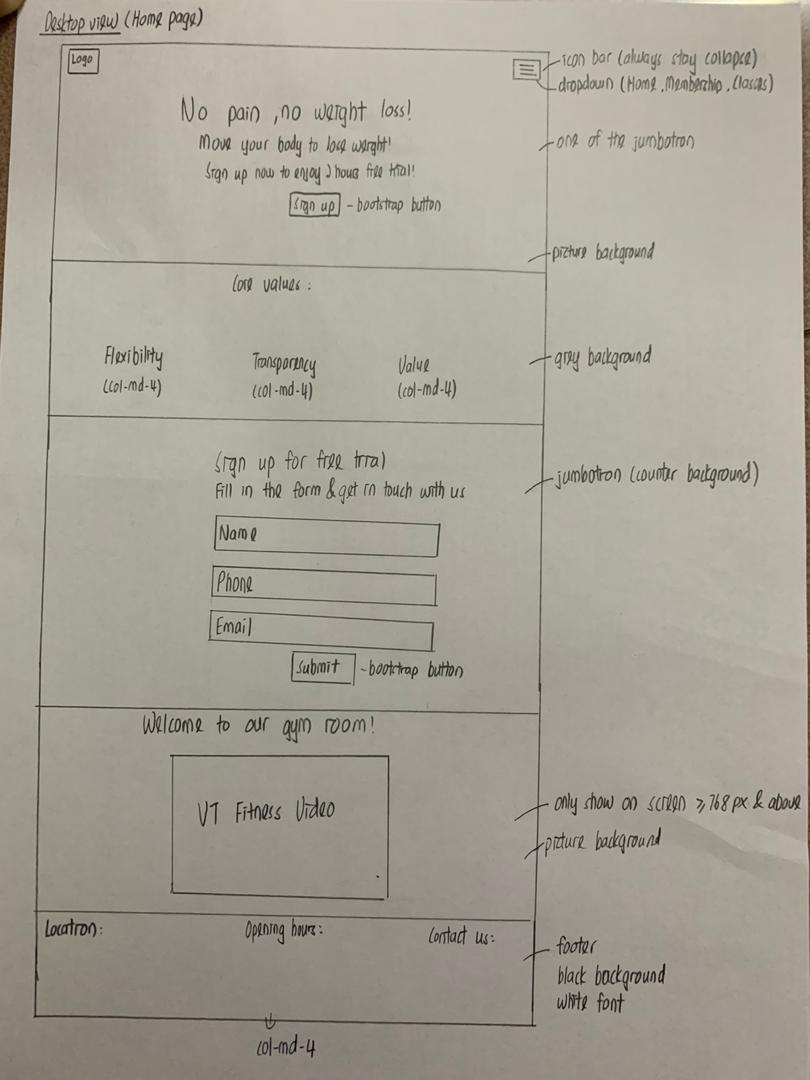 Desktop view (Home page)
Logo
icon bar (always stay collapse)
dropdown (Home, Membership, Classes)
No pain, no weight loss!
Move your body to lose weight!
one of the jumbotron
Sign up now to enjoy 2 hours free trial!
Sign up - bootstrap button
picture background
Core values:
Flexibility Transparency Value
grey background
(col-md-4) (col-md-4) (col-md-4)
Sign up for free trial
Fill in the form & get in touch with us
jumbotron (counter background)
Name
Phone
Email
Submit - bootstrap button
Welcome to our gym room!
VT Fitness Video
only show on screen ≥768 px & above
picture background
Location: Opening hours: Contact us:
footer
black background
white font
col-md-4